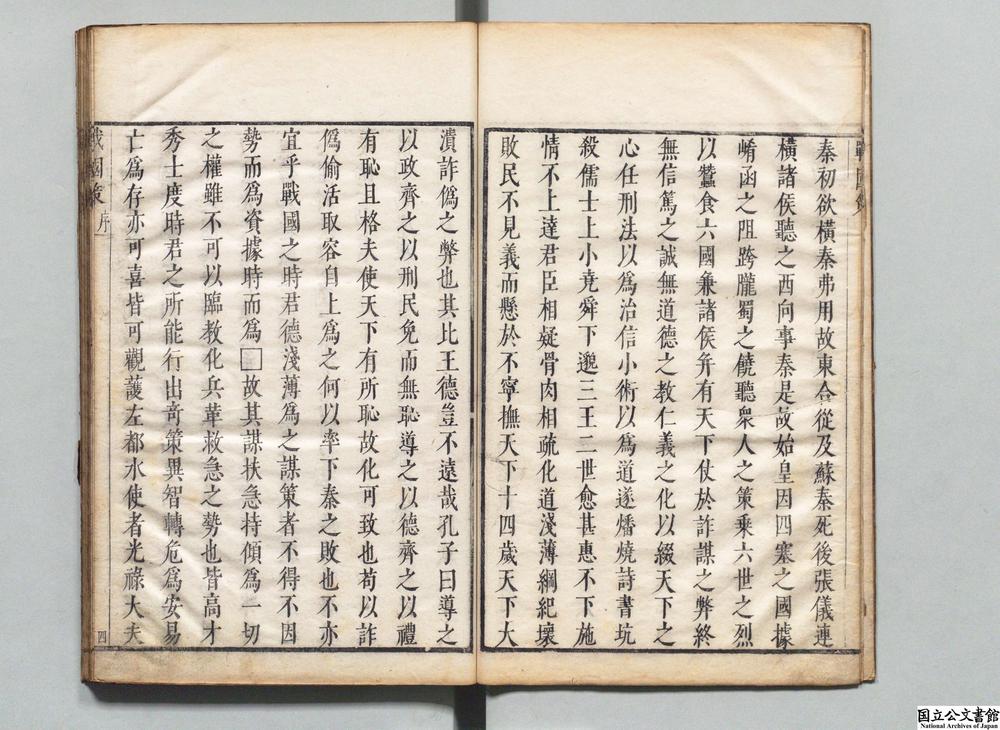 秦初欲橫秦弗用故東合從及蘇秦死後張儀連
橫諸侯聽之西向事秦是故始皇因四塞之國據
崤函之阻跨隴蜀之饒聽衆人之策乘六世之烈
以蠶食六國兼諸侯并有天下仗於詐謀之弊終
無信篤之誠無道德之教仁義之化以綴天下之
心任刑法以爲治信小術以爲道遂燔燒詩書坑
殺儒士上小堯舜下邈三王二世愈甚惠不下施
情不上達君臣相疑骨肉相疏化道淺薄綱紀壞
敗民不見義而懸於不寧撫天下十四歲天下大
潰詐僞之弊也其比王德豈不遠哉孔子曰導之
以政齊之以刑民免而無恥導之以德齊之以禮
有恥且格夫使天下有所恥故化可致也苟以詐
僞偷活取容自上爲之何以率下秦之敗也不亦
宜乎戰國之時君德淺薄爲之謀策者不得不因
勢而爲資據時而爲□故其謀扶急持傾爲一切
之權雖不可以臨教化兵革救急之勢也皆高才
秀士度時君之所能行出奇策異智轉危爲安易
亡爲存亦可喜皆可觀護左都水使者光祿大夫
戰國策 序
四
国立公文書館
National Archives of Japan